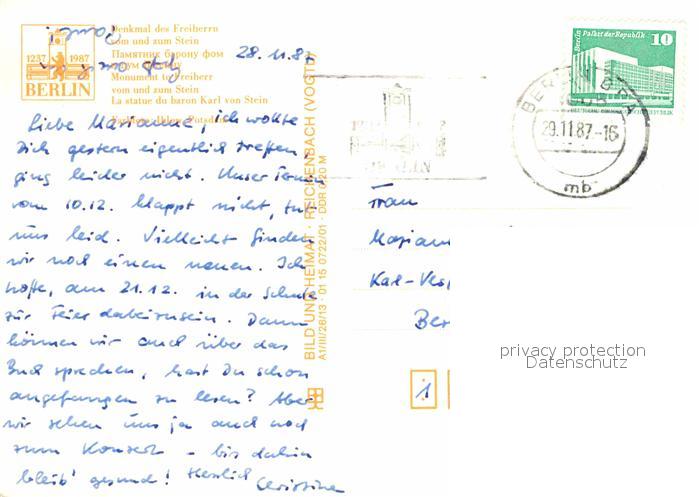 Denkmal des Freiherrn
vom und zum Stein
Памятник барону фом
Monument to Freiherr
vom und zum Stein
La statue du baron Karl von Stein
1237 1987
BERLIN
28.11.87
Liebe Marianne, ich wollte
Dich gestern eigentlich treffen,
ging leider nicht. Unser Termin
vom 10.12. klappt nicht, tut
uns leid. Vielleicht finden
wir noch einen neuen. Ich
hoffe, am 21.12. in der Schule
zur Feier dabeizusein. Dann
können wir auch über das
Buch sprechen, hast Du schon
angefangen zu lesen? Aber
wir sehen uns ja auch noch
zum Konzert – bis dahin
bleib' gesund! Herzlich Christine
BILD UND HEIMAT · REICHENBACH (VOGTL)
A1/III/26/13 · 01 15 0722/01 · DDR 0,20 M
Berlin Palast der Republik
10
29.11.87-16
mb
Frau
Mariann
Karl-
Ber
1
privacy protection
Datenschutz